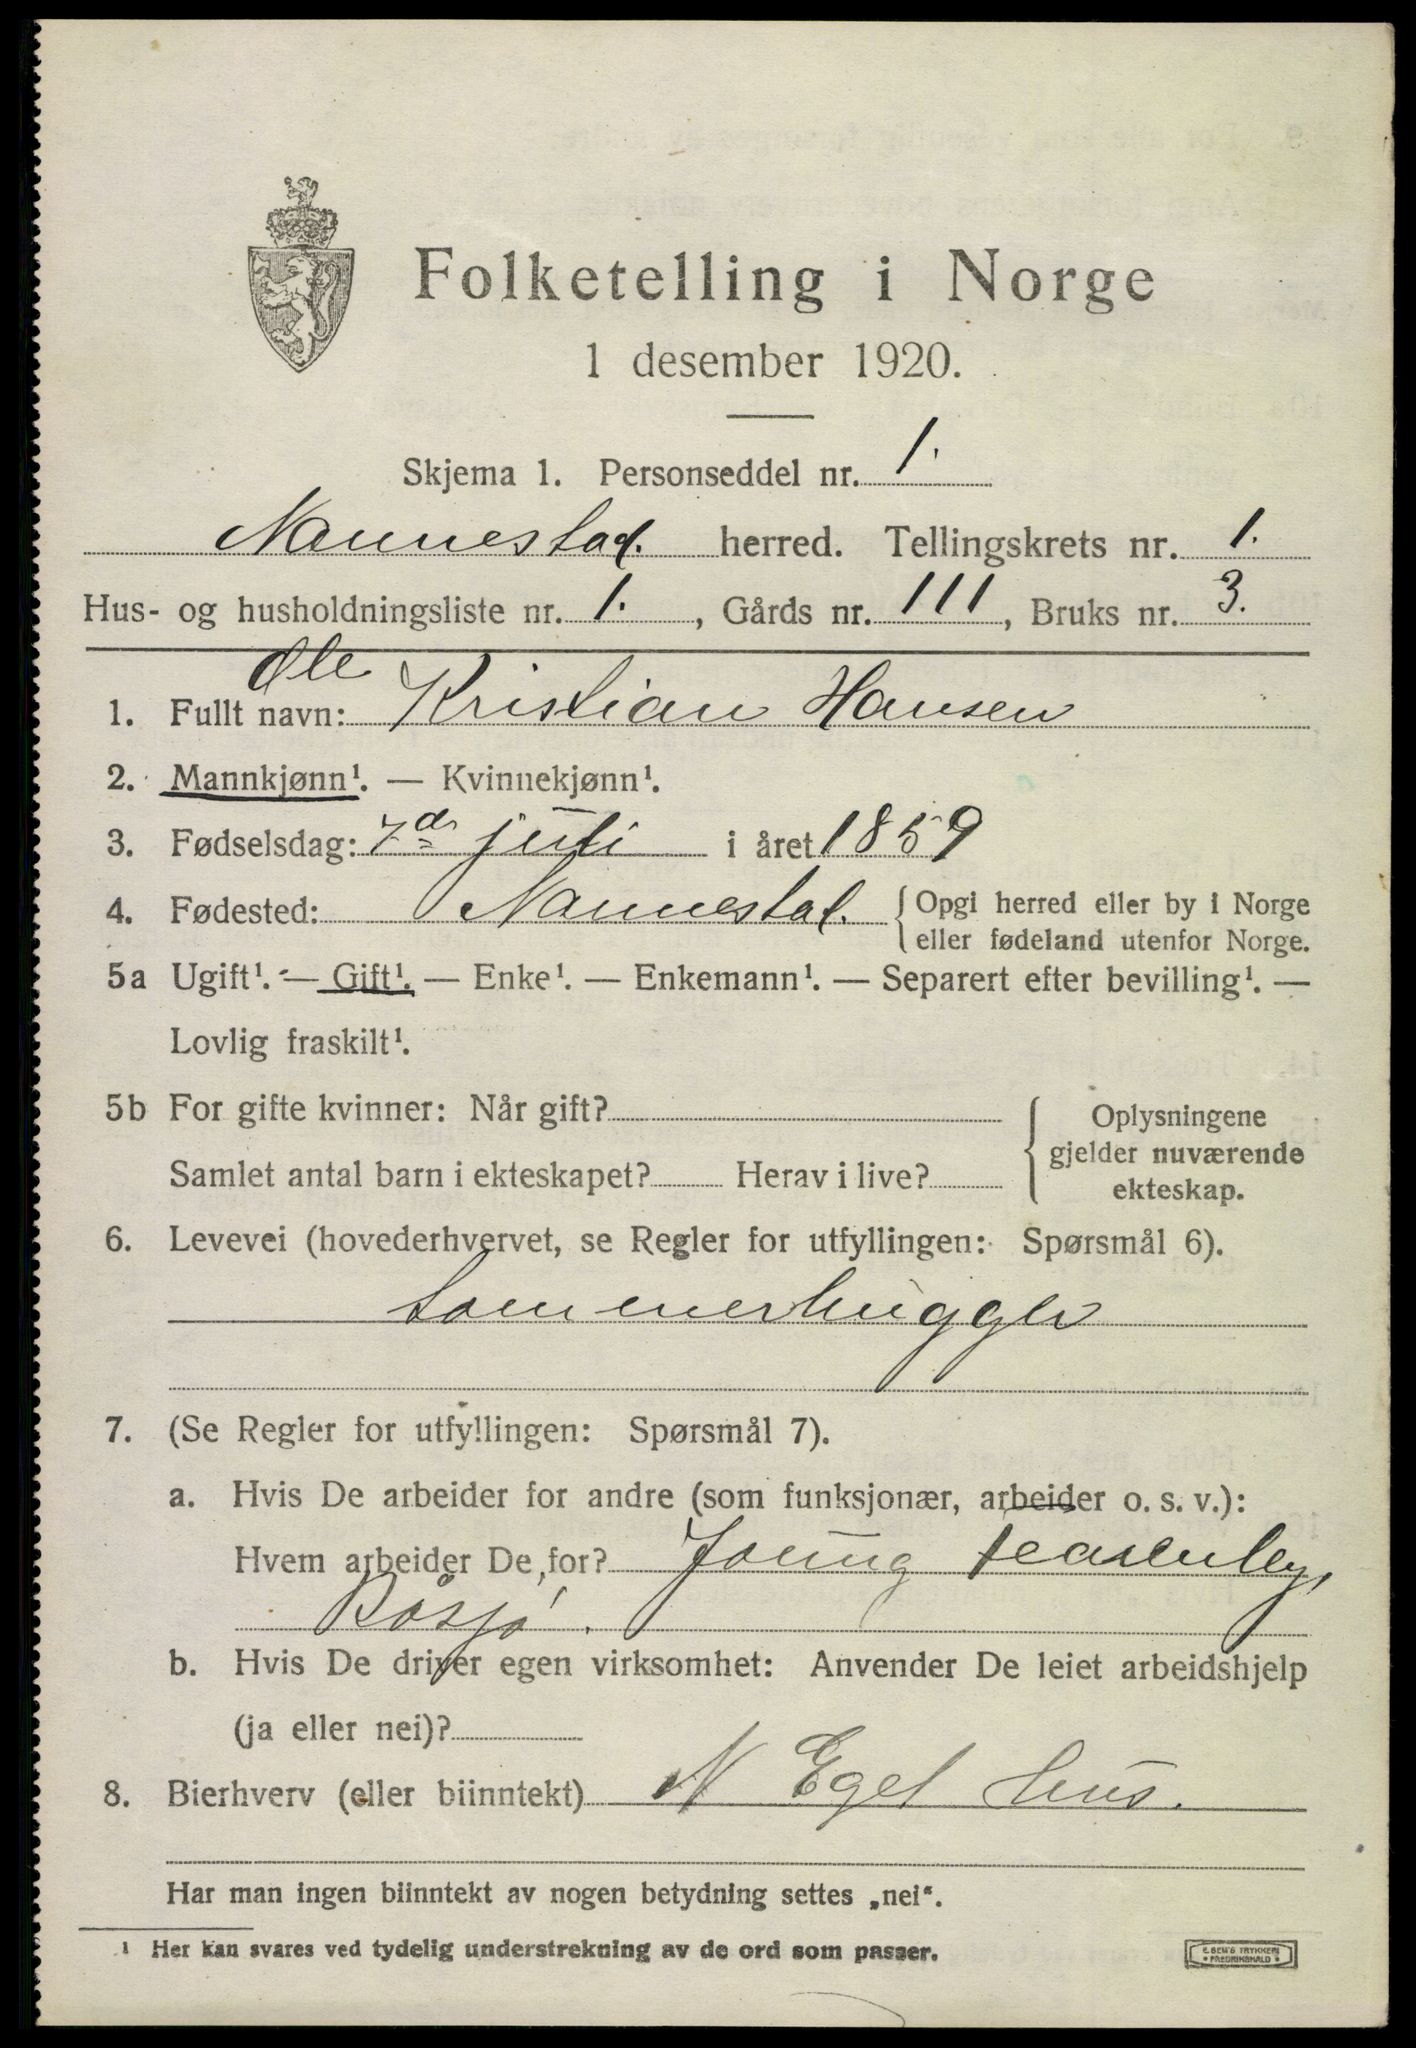 Folketelling i Norge
1 desember 1920.
Skjema 1. Personseddel nr. 1.
Nannestad. herred. Tellingskrets nr. 1.
Hus- og husholdningsliste nr. 1. , Gårds nr. 111, Bruks nr. 3.
Ole
1. Fullt navn: Kristian Hansen
2. Mannkjønn¹. — Kvinnekjønn¹.
3. Fødselsdag: 7de juli i året 1859
4. Fødested: Nannestad. { Opgi herred eller by i Norge
eller fødeland utenfor Norge.
5a Ugift¹. — Gift¹. — Enke¹. — Enkemann¹. — Separert efter bevilling¹. —
Lovlig fraskilt¹.
5b For gifte kvinner: Når gift? { Oplysningene
gjelder nuværende
Samlet antal barn i ekteskapet? Herav i live?
ekteskap.
6. Levevei (hovederhvervet, se Regler for utfyllingen: Spørsmål 6).
tømmerhugger
7. (Se Regler for utfyllingen: Spørsmål 7).
a. Hvis De arbeider for andre (som funksjonær, arbeider o. s. v.):
Hvem arbeider De for?
b. Hvis De driver egen virksomhet: Anvender De leiet arbeidshjelp
(ja eller nei)?
8. Bierhverv (eller biinntekt) N Eget hus.
Har man ingen biinntekt av nogen betydning settes „nei“.
¹ Her kan svares ved tydelig understrekning av de ord som passer.
E. SEM'S TRYKKERI
• FREDRIKSHALD •